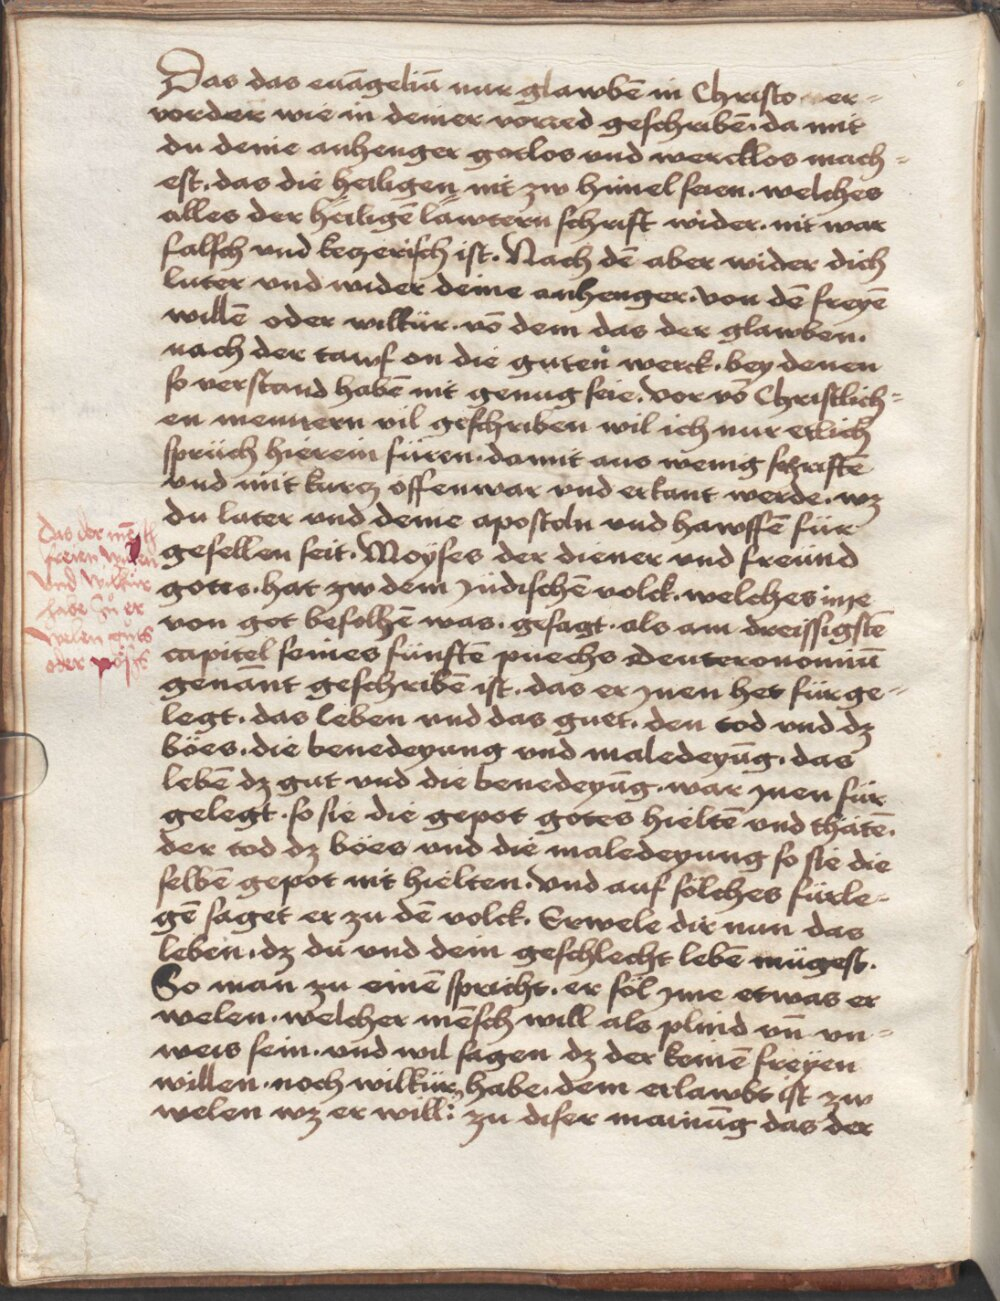 Das das euāgeliū nur glawbē in Christo er-
vorder wie in deiner vorred geschriben. da mit
du deine anhenger gotlos und wercklos mach-
est. das die heiligen nit zw himel seien. welches
alles der heiligē lawtern schrift wider. nit war
falsch und ketzerisch ist. Nach dē aber wider dich
luter und wider deine anhenger. von dē freyē
willē oder wilkür. vō dem das der glawben.
nach der tawf on die guten werck. bey denen
so verstand habē nit genug seie. vor vō Christlich-
en mennern vil geschriben wil ich nur etlich
sprüch hierein füren. damit aus wenig schriftē
und mit kurcz offenwar und erkant werde. wz
du luter und deine apostoln und hawffē für
gesellen seit. Moyses der diener und freünd
gotes. hat zw dem Jüdischē volck. welches ime
von got befolhē was. gesagt. als am dreissigstē
capitel seines fünftē puechs Deuteronomiū
genant geschribē ist. das er jnen het fürge-
legt. das leben und das guet. den tod und dz
böes. die benedeyung und maledeyūg. das
lebē dz gut und die benedeyūg. war jnen für
gelegt. so sie die gepot gotes hieltē und thätē.
der tod dz böes und die maledeyung so sie die
selbē gepot nit hielten. Und auf sölches fürle-
gē saget er zu dē volck. Erwele dir nun das
leben. dz du und dein geschlecht lebē mügest.
So man zu einē spricht. er söl jme etwas er
welen. welcher mēsch will als plind uñ un-
weis sein. und wil sagen dz der keinē freyen
willen. noch wilkür habe. dem erlawbt ist zw
welen wz er will: zu diser mainūg das der
Das der mēsch
freien willen
und wilkür
habe zu er
welen guts
oder pös